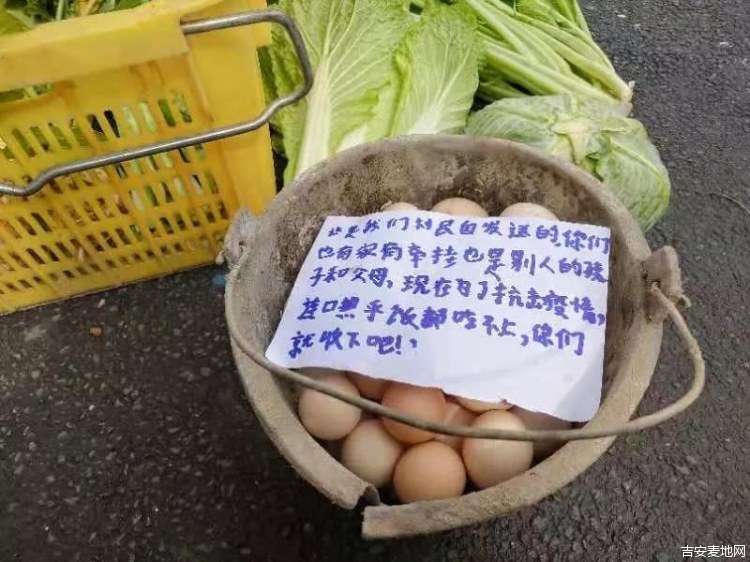 这是我们村民自发送的,你们
也有家有牵挂也是别人的孩
子和父母,现在为了抗击疫情,
连口热乎饭都吃不上,你们
就收下吧!
吉安麦地网